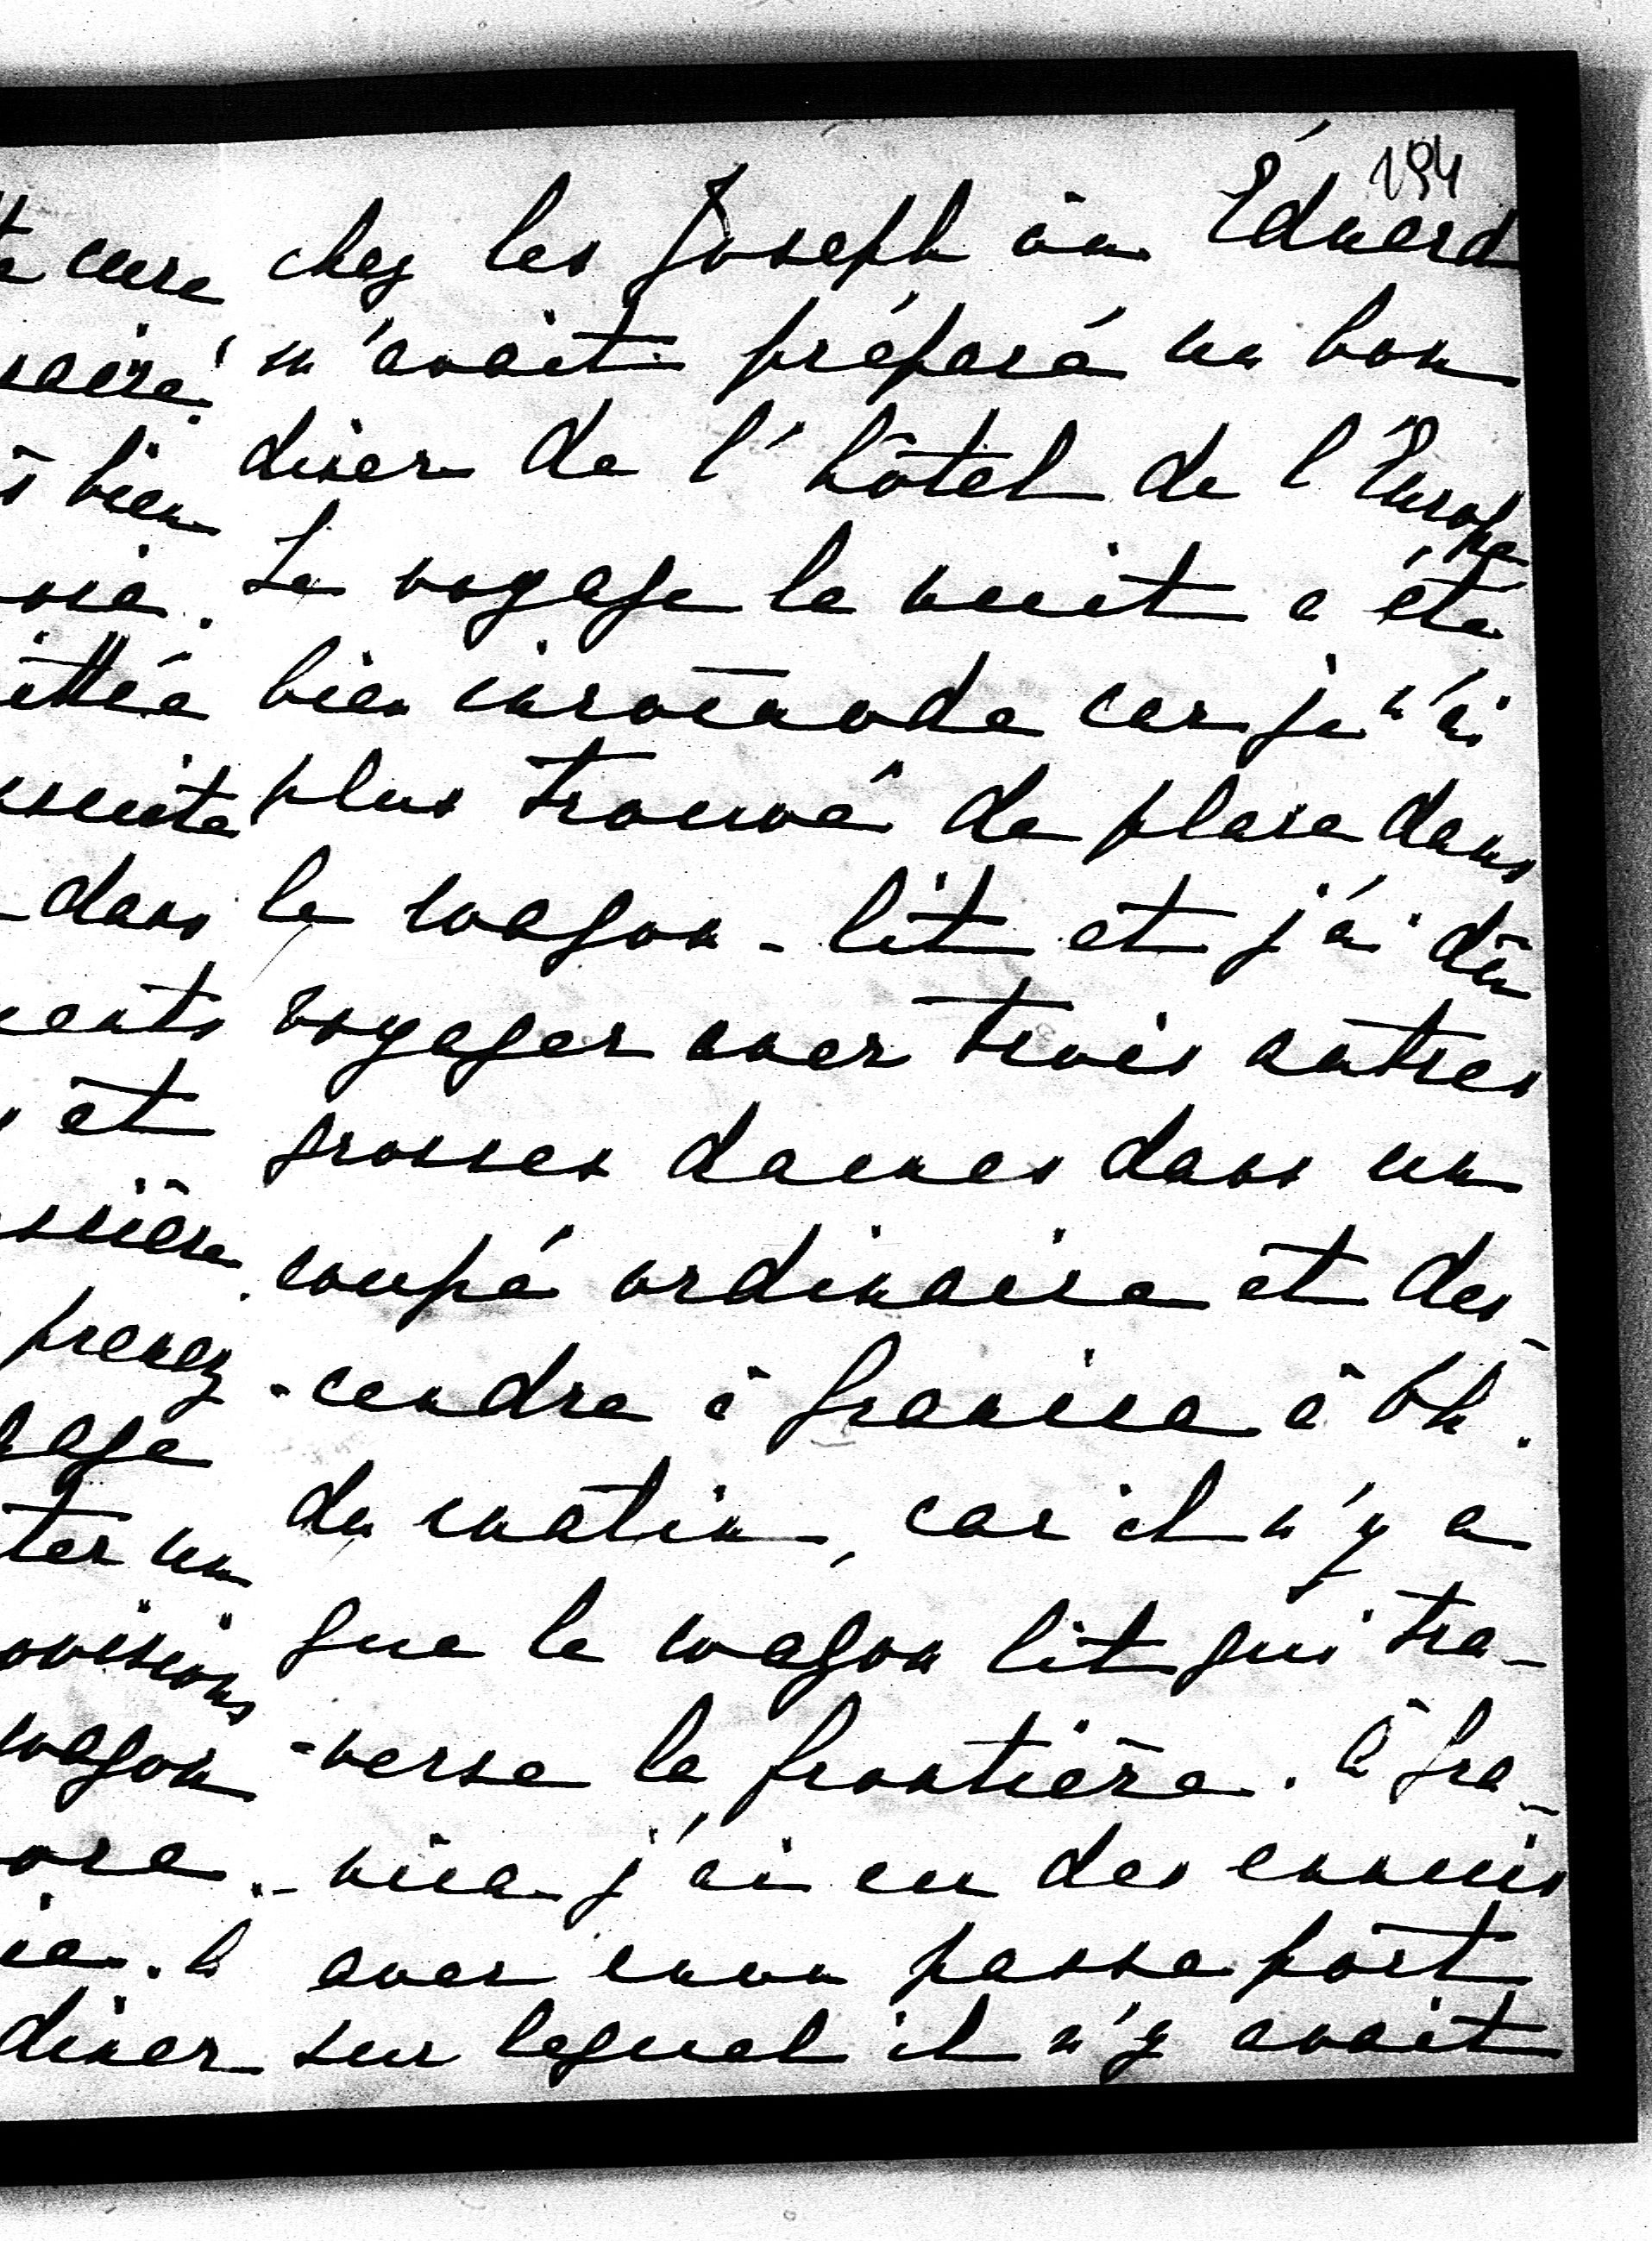 194
chez les Joseph où Éduard
m'avait préparé un bon
diner de l'hôtel de l'Europe
Le voyage la nuit a été
bien incomode car je n'ai
plus trouvé de place dans
le wagon-lit et j'ai dû
voyager avec trois autres
grosses dames dans un
coupé ordinaire et des-
-cendre à Granica à 6h.
du matin, car il n'y a
que le wagon lit qui tra-
-verse la frontière. à Gra-
-nica j'ai eu des ennuis
avec mon passeport
sur lequel il n'y avait
cure
bien
dans
et
prenez
ter un
wagon
diner